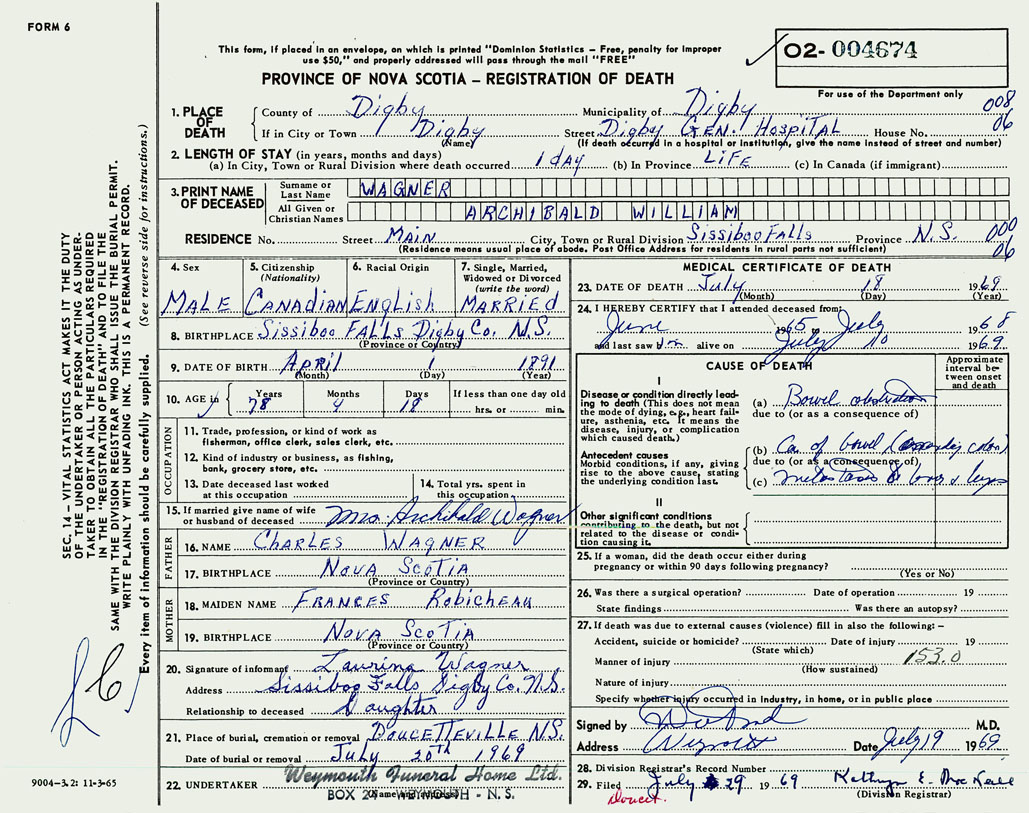 FORM 6
This form, if placed in an envelope, on which is printed "Dominion Statistics – Free, penalty for improper
use $50," and properly addressed will pass through the mail "FREE"
PROVINCE OF NOVA SCOTIA – REGISTRATION OF DEATH
02- 004674
For use of the Department only
008
06
1. PLACE OF DEATH
County of Digby Municipality of Digby
If in City or Town Digby Street Digby GEN. HOSPITAL House No.
(Name) (If death occurred in a hospital or institution, give the name instead of street and number)
2. LENGTH OF STAY (in years, months and days)
(a) In City, Town or Rural Division where death occurred 1 day (b) In Province LIFE (c) In Canada (if immigrant)
3. PRINT NAME OF DECEASED
Surname or Last Name WAGNER
All Given or Christian Names ARCHIBALD WILLIAM
RESIDENCE No. Street MAIN City, Town or Rural Division Sissiboo Falls Province N.S. 000
(Residence means usual place of abode. Post Office Address for residents in rural parts not sufficient) 06
4. Sex MALE
5. Citizenship (Nationality) CANADIAN
6. Racial Origin English
7. Single, Married, Widowed or Divorced (write the word) MARRIEd
8. BIRTHPLACE Sissiboo FALLS Digby Co. N.S.
(Province or Country)
9. DATE OF BIRTH APRIL 1 1891
(Month) (Day) (Year)
10. AGE in Years 78 Months 4 Days 18 If less than one day old
hrs. or min.
OCCUPATION
11. Trade, profession, or kind of work as
fisherman, office clerk, sales clerk, etc.
12. Kind of industry or business, as fishing,
bank, grocery store, etc.
13. Date deceased last worked
at this occupation
14. Total yrs. spent in
this occupation
15. If married give name of wife
or husband of deceased Mrs. Archibald Wagner
FATHER
16. NAME CHARLES WAGNER
17. BIRTHPLACE NOVA SCOTIA
(Province or Country)
MOTHER
18. MAIDEN NAME FRANCES Robicheau
19. BIRTHPLACE NOVA SCOTIA
(Province or Country)
20. Signature of informant Wagner
Address Sissiboo Falls Digby Co. N.S.
Relationship to deceased Daughter
21. Place of burial, cremation or removal DOUCETTEVILLE N.S.
Date of burial or removal July 20TH 1969
22. UNDERTAKER Weymouth Funeral Home Ltd.
(Name and address)
BOX WEYMOUTH - N. S.
MEDICAL CERTIFICATE OF DEATH
23. DATE OF DEATH July 18 1969
(Month) (Day) (Year)
24. I HEREBY CERTIFY that I attended deceased from:
June 1965 to July 1968
and last saw him alive on July 10 1969
CAUSE OF DEATH
Approximate interval between onset and death
I
Disease or condition directly leading to death (This does not mean the mode of dying, e.g., heart failure, asthenia, etc. It means the disease, injury, or complication which caused death.)
(a) Bowel obstruction
due to (or as a consequence of)
Antecedent causes
Morbid conditions, if any, giving rise to the above cause, stating the underlying condition last.
(b) Ca. of bowel
due to (or as a consequence of)
(c) metastases
II
Other significant conditions
contributing to the death, but not related to the disease or condition causing it.
25. If a woman, did the death occur either during
pregnancy or within 90 days following pregnancy?
(Yes or No)
26. Was there a surgical operation? Date of operation 19
State findings Was there an autopsy?
27. If death was due to external causes (violence) fill in also the following: –
Accident, suicide or homicide? Date of injury 19
(State which)
Manner of injury 153.0
(How sustained)
Nature of injury
Specify whether injury occurred in industry, in home, or in public place
Signed by M.D.
Address Weymouth Date July 19 1969
28. Division Registrar's Record Number
29. Filed July 29 1969 Kathryn E.
(Division Registrar)
Doucet.
SEC. 14 – VITAL STATISTICS ACT MAKES IT THE DUTY
OF THE UNDERTAKER OR PERSON ACTING AS UNDER-
TAKER TO OBTAIN ALL THE PARTICULARS REQUIRED
IN THE "REGISTRATION OF DEATH" AND TO FILE THE
SAME WITH THE DIVISION REGISTRAR WHO SHALL ISSUE THE BURIAL PERMIT.
WRITE PLAINLY WITH UNFADING INK. THIS IS A PERMANENT RECORD.
Every item of information should be carefully supplied. (See reverse side for instructions.)
9004–3.2: 11-3-65